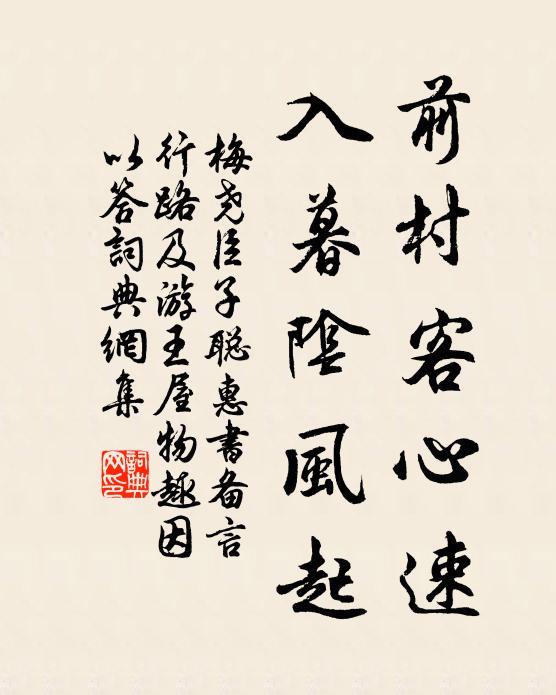 前村客心速
入暮陰風起
梅堯臣子聪惠書备言
行路及游王屋物趣因
以答詞典網集
詞典
网印